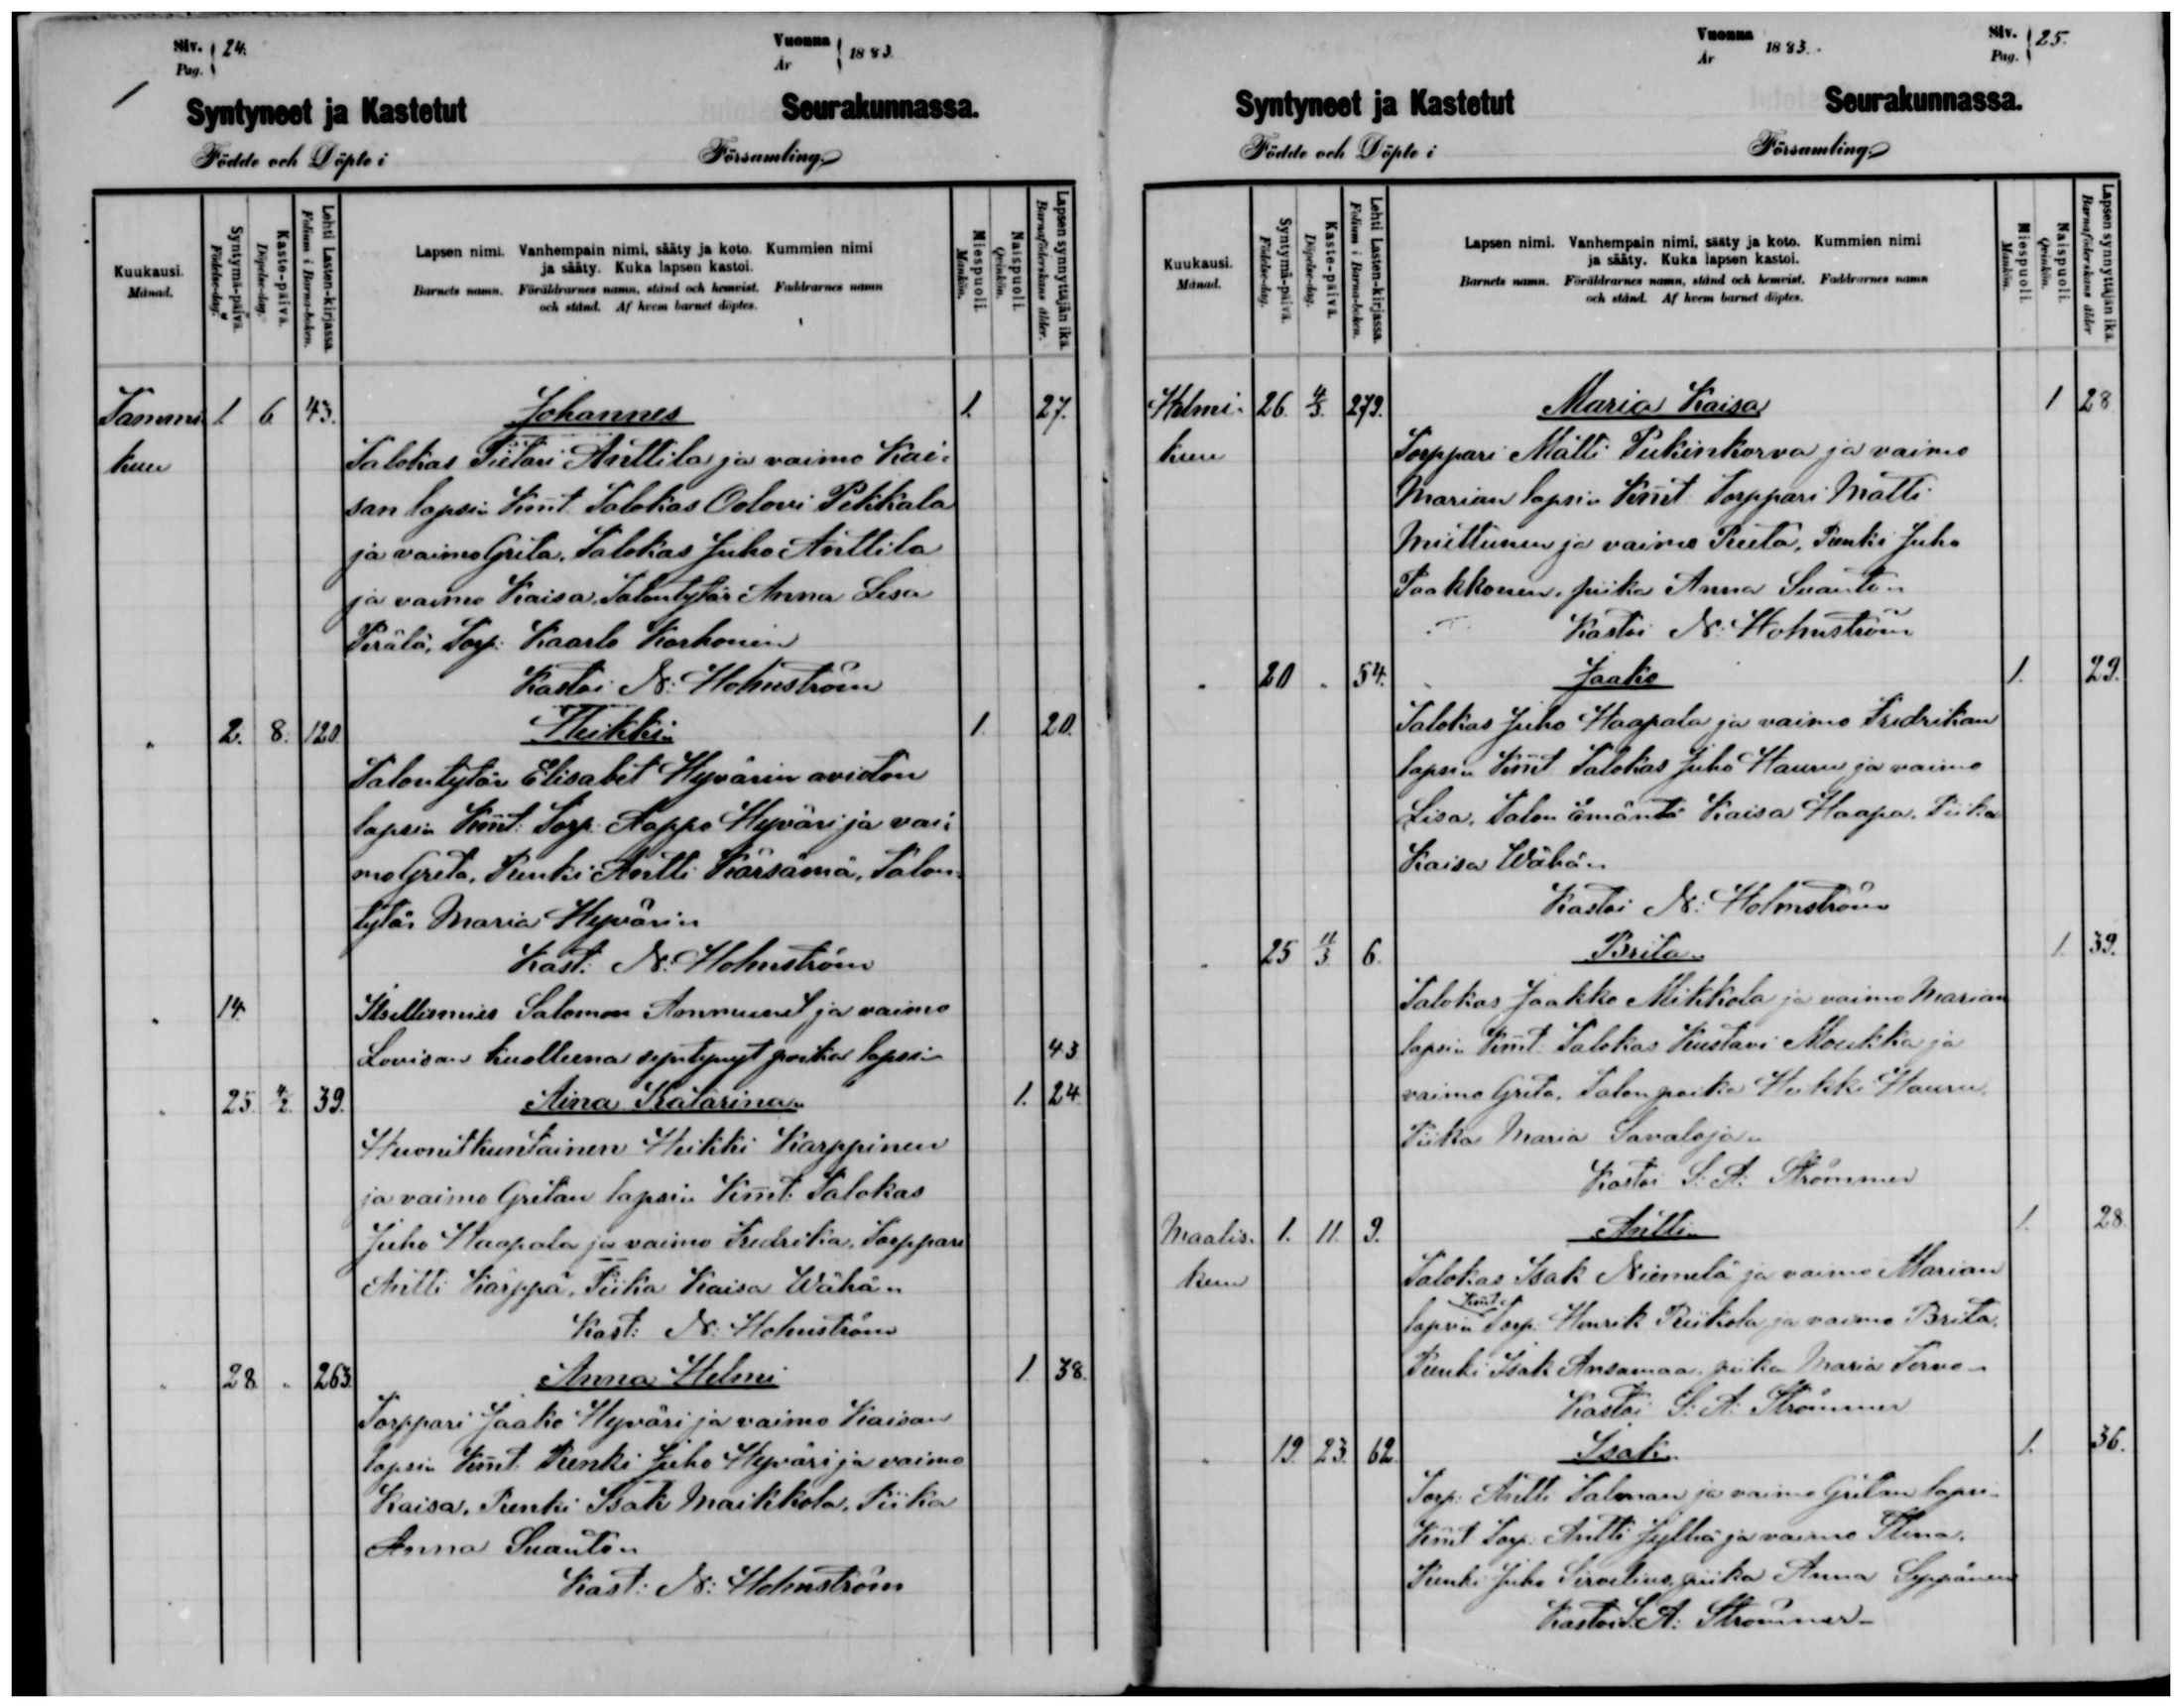 Siv. 24.
Pag.
Vuonna 1883.
År
Syntyneet ja Kastetut Seurakunnassa.
Födde och Döpte i Församling.
Kuukausi.
Månad.
Syntymä-päivä.
Födelse-dag.
Kaste-päivä.
Döpelse-dag.
Lehti Lasten-kirjassa.
Folium i Barna-boken.
Lapsen nimi. Vanhempain nimi, sääty ja koto. Kummien nimi
ja sääty. Kuka lapsen kastoi.
Barnets namn. Föräldrarnes namn, stånd och hemvist. Faddrarnes namn
och stånd. Af hvem barnet döptes.
Miespuoli.
Mankön.
Naispuoli.
Qvinkön.
Lapsen synnyttäjän ikä.
Barnaföderskans ålder.
Tammi 1. 6. 43. Johannes 1. 27.
kuu Talokas Pietari Anttila ja vaimo Kai-
san lapsi. Kmt. Talokas Oolovi Pekkala
ja vaimo Greta, Talokas Juho Anttila
ja vaimo Kaisa, Talontytär Anna Lisa
Perälä, Torp. Kaarlo Korhonen
Kastoi N: Holmström
" 2. 8. 120. Heikki 1. 20.
Talontytär Elisabet Hyvärin avioton
lapsi. Kmt: Torp. Aappo Hyväri ja vai-
mo Greta, Renki Antti Kärsämä, Talon-
tytär Maria Hyvärin
Kast: N: Holmström
" 14. Itsellismies Salomon ja vaimo
Lovisan kuolleena syntynyt poika lapsi 43
" 25. 4/2. 39. Aina Katarina 1. 24
Huonekuntainen Heikki Karppinen
ja vaimo Gretan lapsi. Kmt: Talokas
Juho Haapala ja vaimo Fredrika, Torppari
Antti Karppa, Piika Kaisa Wähä
Kast: N: Holmström
" 28 " 263 Anna Helmi 1. 38.
Torppari Jaako Hyväri ja vaimo Kaisan
lapsi. Kmt. Renki Juho Hyväri ja vaimo
Kaisa, Renki Isak Maikkola, Piika
Anna Suanto
Kast: N: Holmström
Vuonna 1883.
År
Siv. 25.
Pag.
Syntyneet ja Kastetut Seurakunnassa.
Födde och Döpte i Församling.
Kuukausi.
Månad.
Syntymä-päivä.
Födelse-dag.
Kaste-päivä.
Döpelse-dag.
Lehti Lasten-kirjassa.
Folium i Barna-boken.
Lapsen nimi. Vanhempain nimi, sääty ja koto. Kummien nimi
ja sääty. Kuka lapsen kastoi.
Barnets namn. Föräldrarnes namn, stånd och hemvist. Faddrarnes namn
och stånd. Af hvem barnet döptes.
Miespuoli.
Mankön.
Naispuoli.
Qvinkön.
Lapsen synnyttäjän ikä.
Barnaföderskans ålder
Helmi- 26. 4/3. 279. Maria Kaisa 1 28
kuu Torppari Matti Pukinkorva ja vaimo
Marian lapsi. Kmt. Torppari Matti
Miettunen ja vaimo Reeta, Renki Juho
Paakkonen, piika Anna Suanto
Kastoi N: Holmström
" 20 " 54. Jaako 1. 29.
Talokas Juho Haapala ja vaimo Fredrikan
lapsi. Kmt Talokas Juho Hauru ja vaimo
Lisa, Talon Emäntä Kaisa Haapa, Piika
Kaisa Wähä
Kastoi N: Holmström
" 25 11/3 6. Brita 1. 39.
Talokas Jaakko Mikkola ja vaimo Marian
lapsi. Kmt: Talokas Kustavi Moukka ja
vaimo Greta, Talon poika Heikki Hauru,
Piika Maria Savaloja
Kastoi S: A: Strömmer
Maalis- 1. 11. 9. Antti 1. 28.
kuu Talokas Isak Niemelä ja vaimo Marian
lapsi Kmt. Torp. Henrik Riikola ja vaimo Brita,
Renki Isak Ansamaa, piika Maria Tervo
Kastoi S: A: Strömmer
" 19. 23. 62. Isak 1. 36.
Torp: Antti Salman ja vaimo Gretan lapsi
Kmt Torp: Antti Jylhä ja vaimo Stina,
Renki Juho Sirvelius, piika Anna Seppänen
Kastoi S. A: Strömmer